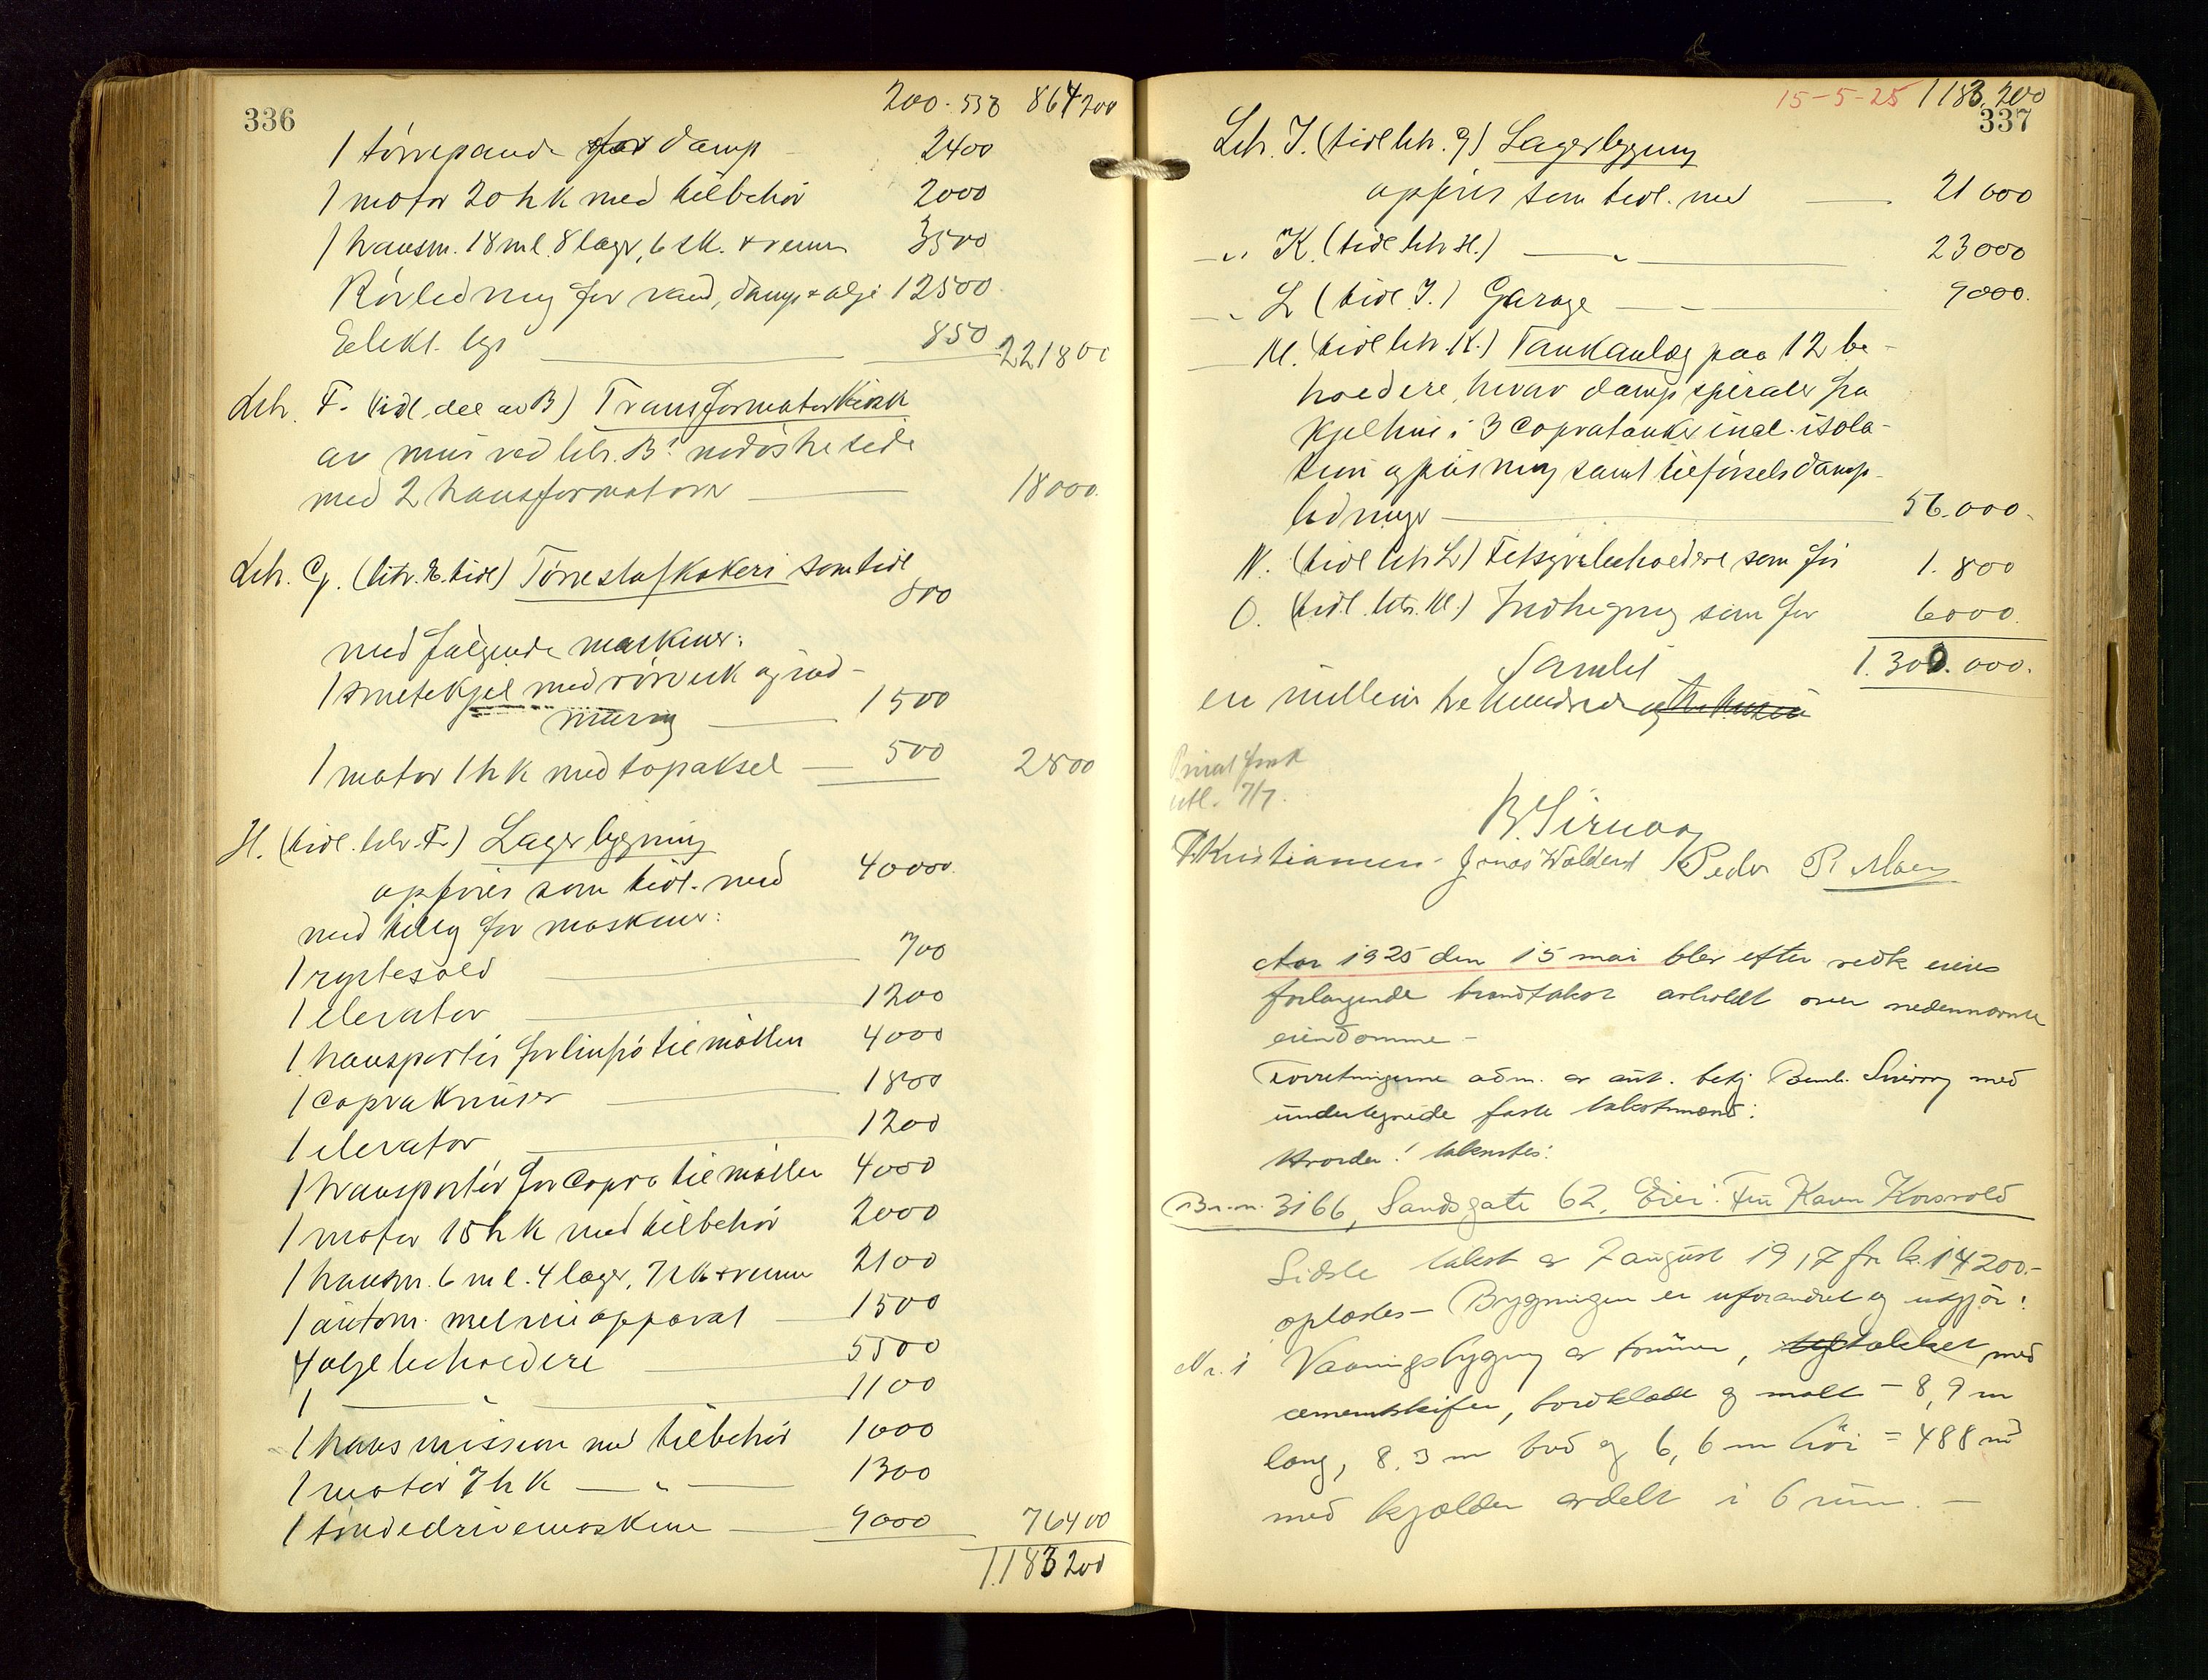 336
200.550 864200
1 tørrepande for damp 2400
1 motor 20 hk med tilbehør 2000
1 transm. 18 ml. 8 lager, 6 sk. + remm 3500
Rörledning for vand, damp & olje 12500
Elekt. lys 850 221800
Litr. F. (tidl. del av B) Transformatorkiosk
av mur ved litr. B's nedöstre side
med 2 transformatorer 18000.
Litr. G. (litr. E. tidl) Törrestofkokeri som tidl
800
med følgende maskiner:
1 smeltekjel med rörverk og ind-
muring 1500
1 motor 1 hk med topaksel 500 2800
H. (tidl. litr. F.) Lagerbygning
opføres som tidl. med 40000.
med tillæg for maskiner:
1 rystesold 700
1 elevator 1200
1 transportör for linfrö til möllen 4000
1 Copraknuser 1800
1 elevator 1200
1 transportör for Copra til möllen 4000
1 motor 15 hk med tilbehör 2000
1 transm. 6 ml. 4 lager, 7 sk + remm 2100
1 autom. apparat 1500
4 oljebeholdere 5500
1 — " — 1100
1 transmission med tilbehör 1000
1 motor 7 hk — " — 1300
1 tøndedrivemaskine 9000 76400
1.183200
15-5-25 1183.200
337
Litr. J. (tidl litr. G) Lagerbygning
opføres som tidl. med 21000
— " K. (tidl litr H.) — " — 23000
— " L (tidl J.) Garage — " — 9000.
— M. (tidl litr. K.) Tankanlæg paa 12 be-
holdere, hvorav dampspiraler fra
kjelhus i 3 Copratanker incl. isola-
tion og pusning samt tilførselsdamp-
ledninger 56.000.
N. (tidl litr L) Fetsyrebeholdere som før 1.800
O. (tidl. litr. M.) Indhegning som før 6000.
Samlet 1.300.000.
en million tre hundrede og tre tusen
utl. 7/7.
B. Sirevaag
T. Kristiansen Jonas Walderst Peder P. Moen
Aar 1925 den 15 mai blev efter vedk eieres
forlangende brandtakst avholdt over nedennævnte
eiendomme –
Forretningerne adm. av aut. besty Bernh. Sirevaag med
undertegnede faste takstmænd:
Hvorda! taksertes:
Br. nr. 3166, Sandsgate 62, Eier: Fru Karen Korsvold
Sidste takst av 7 august 1917 for kr. 14200.–
oplæstes – Bygningen er uforandret og utgjör:
Nr. 1 Vaaningsbygning av tömmer, tegltækket med
cementskifer, bordklædt og malt – 8,9 m
lang, 8.3 m bred og 6,6 m höi = 488 m³
med kjælder avdelt i 6 rum. –